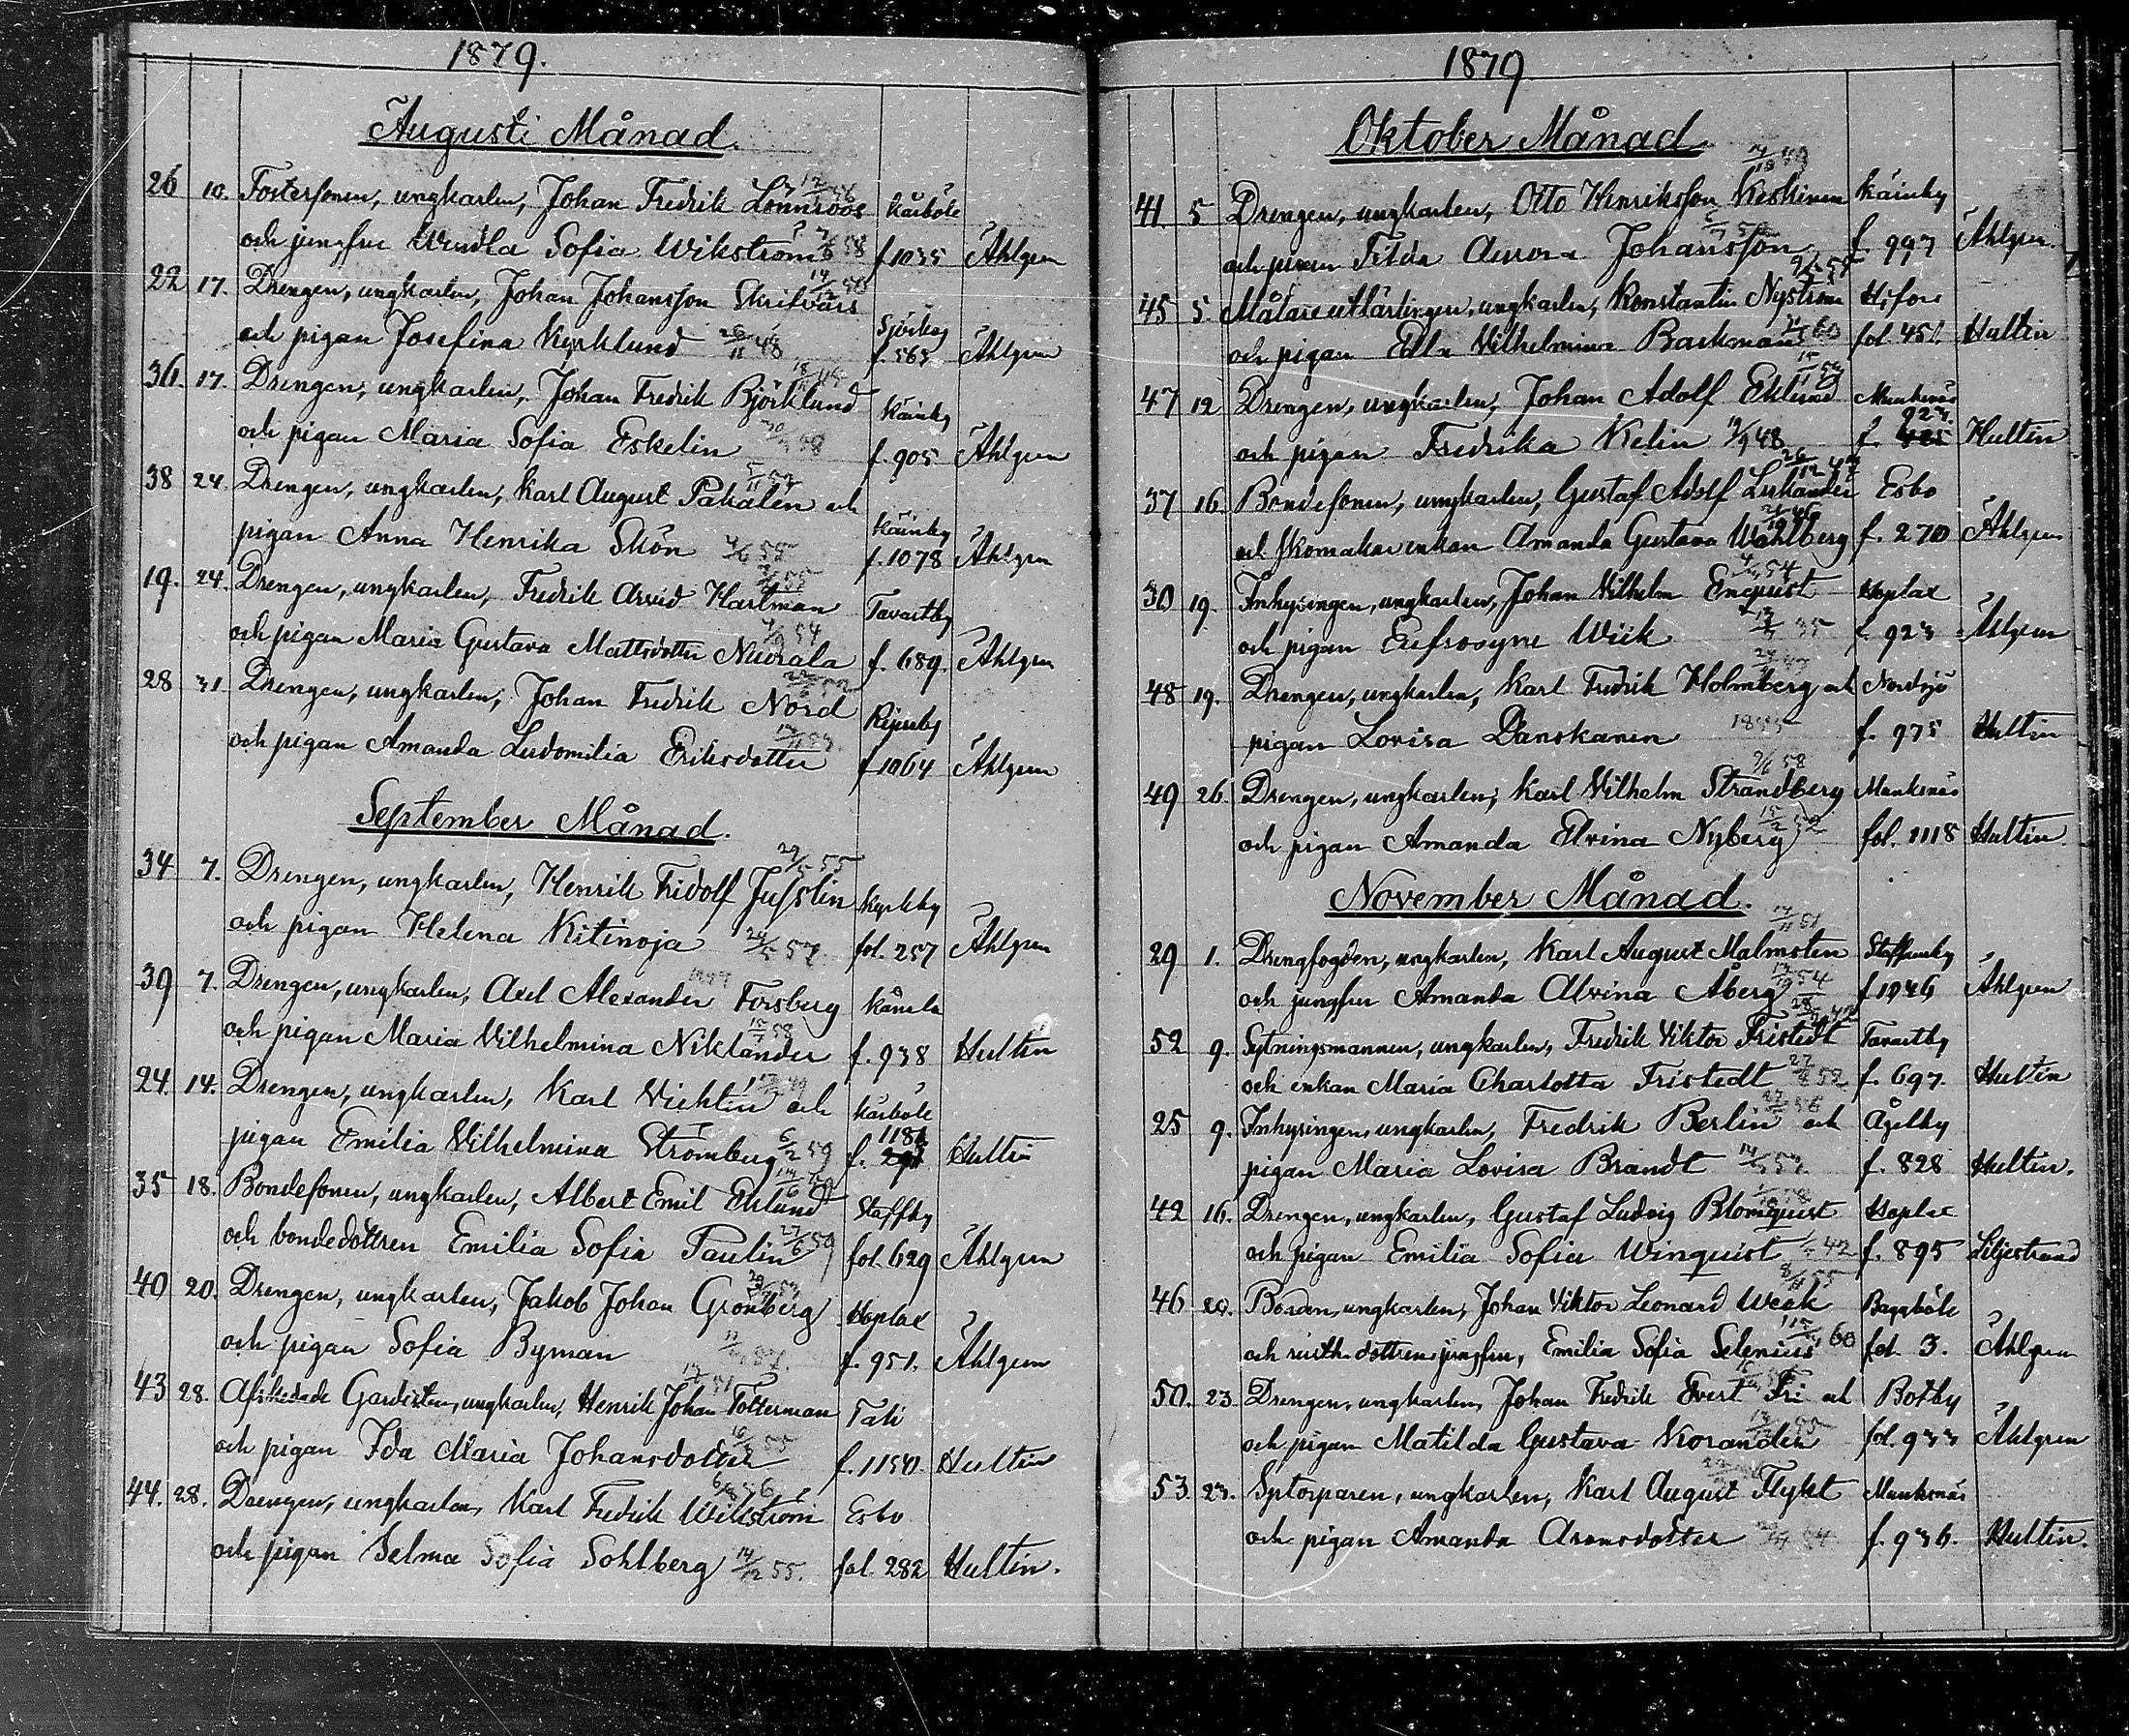 1879.
Augusti Månad.
26 10. Fostersonen, ungkarlen, Johan Fredrik Lönnroos Kårböle
och jungfru Wendla Sofia Wikström f. 1035 Åhlgren
22 17. Drengen, ungkarlen, Johan Johansson Skrifvars
och pigan Josefina Kyrklund 48 Sjöskog f. 565 Åhlgren
36. 17. Drengen, ungkarlen, Johan Fredrik Björklund
och pigan Maria Sofia Eskelin f. 905 Åhlgren
38 24. Drengen, ungkarlen, Karl August Pakalén och
pigan Anna Henrika Skön 4/6 55 f. 1078 Åhlgren
19. 24. Drengen, ungkarlen, Fredrik Arvid Hartman Tavastby
och pigan Maria Gustava Mattsdotter Nuorala f. 689. Åhlgren
28 31 Drengen, ungkarlen, Johan Fredrik Nord
och pigan Amanda Ludomilia Eriksdotter f 1064 Åhlgren
September Månad.
34 7. Drengen, ungkarlen, Henrik Fridolf Jusslin
och pigan Helena Kitinoja fol. 257 Åhlgren
39 7. Drengen, ungkarlen, Axel Alexander Forsberg Kånala
och pigan Maria Vilhelmina Niklander f. 938 Hultin
24. 14. Drengen, ungkarlen, Karl Vichtin och Kårböle
pigan Emilia Vilhelmina Strömberg 6/2 59 f. Hultin
35 18. Bondesonen, ungkarlen, Albert Emil Eklund Staffby
och bondedottren Emilia Sofia Paulin 27/6 59 fol. 629 Åhlgren
40 20. Drengen, ungkarlen, Jakob Johan Grönberg Hoplax
och pigan Sofia Byman f. 951. Åhlgren
43 28. Afskedade Gardisten, ungkarlen, Henrik Johan Totterman Tali
och pigan Ida Maria Johansdotter f. 1150 Hultin
44. 28. Drengen, ungkarlen, Karl Fredrik Wikström Esbo
och pigan Selma Sofia Sohlberg 14/12 55. fol. 282 Hultin.
1879
Oktober Månad.
41. 5 Drengen, ungkarlen, Otto Henriksson Keskinen
och pigan Tilda Aurora Johansson f 997 Åhlgren.
45 5. Målareutlärlingen, ungkarlen, Konstantin Nyström H:fors
och pigan Edla Vilhelmina Backman 60 fol. 451. Hultin
47 12 Drengen, ungkarlen, Johan Adolf Eklund Munksnäs
och pigan Fredrika Kelin 48 f. Hultin
37 16. Bondesonen, ungkarlen, Gustaf Adolf Lukander Esbo
och skomakarenkan Amanda Gustava Wahlberg f. 270 Åhlgren
30 19. Inhysingen, ungkarlen, Johan Vilhelm Enquist Hoplax
och pigan Eufrosyne Wiik f. 923 Åhlgren
48 19. Drengen, ungkarlen, Karl Fredrik Holmberg och Nordsjö
pigan Lovisa Danskanen f. 975 Hultin
49 26. Drengen, ungkarlen, Karl Vilhelm Strandberg Munksnäs
och pigan Amanda Elvina Nyberg fol. 1118 Hultin.
November Månad.
29 1. Drengfogden, ungkarlen, Karl August Malmsten
och jungfru Amanda Alvina Åberg f 1046 Åhlgren
52 9. Sytningsmannen, ungkarlen, Fredrik Viktor Fristedt Tavastby
och enkan Maria Charlotta Fristedt f. 697. Hultin
25 9. Inhysingen, ungkarlen, Fredrik Berlin och Ågelby
pigan Maria Lovisa Brandt f. 828 Hultin.
42 16. Drengen, ungkarlen, Gustaf Ludvig Blomquist Hoplax
och pigan Emilia Sofia Winquist f. 895 Liljestrand
46 20. Bonden, ungkarlen, Johan Viktor Leonard Weak Baggböle
och rusth. dottren, jungfru, Emilia Sofia Selenius 60 fol. 3. Åhlgren
50. 23. Drengen, ungkarlen, Johan Fredrik Evert Fri och Botby
och pigan Matilda Gustava Korander fol. 933 Åhlgren
53 23. Sytorparen, ungkarlen, Karl August Flykt Munksnäs
och pigan Amanda Aronsdotter f. 936. Hultin.